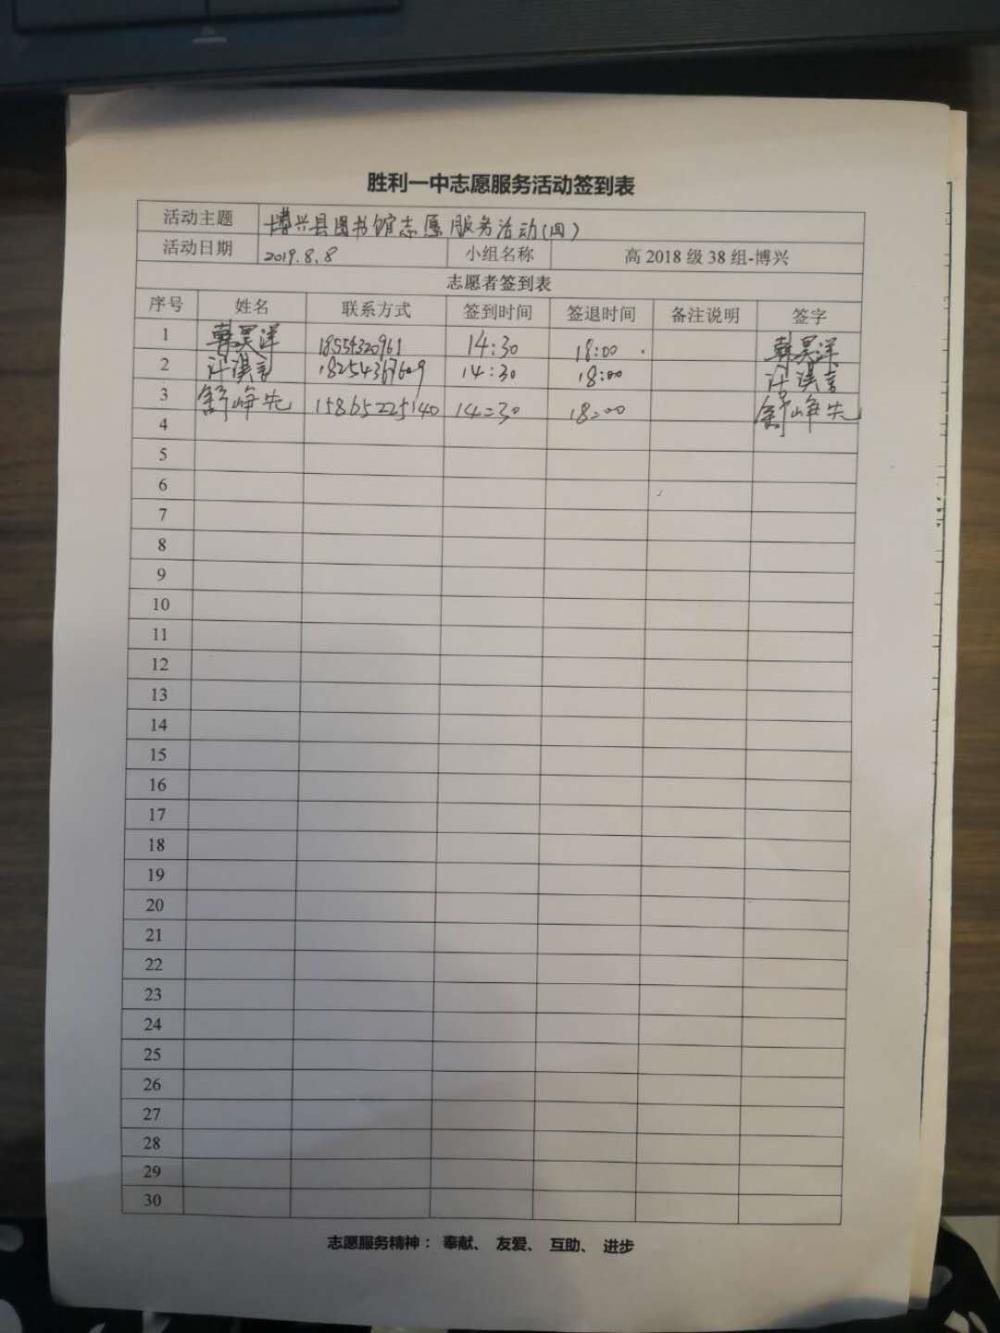 胜利一中志愿服务活动签到表
活动主题 博兴县图书馆志愿服务活动(四)
活动日期 2019.8.8 小组名称 高2018级38组-博兴
志愿者签到表
序号 姓名 联系方式 签到时间 签退时间 备注说明 签字
1 韩昊洋 18554320961 14:30 18:00 韩昊洋
2 许淇言 18254367609 14:30 18:00 许淇言
3 舒峥先 15865225140 14:30 18:00 舒峥先
4
5
6
7
8
9
10
11
12
13
14
15
16
17
18
19
20
21
22
23
24
25
26
27
28
29
30
志愿服务精神：奉献、友爱、互助、进步